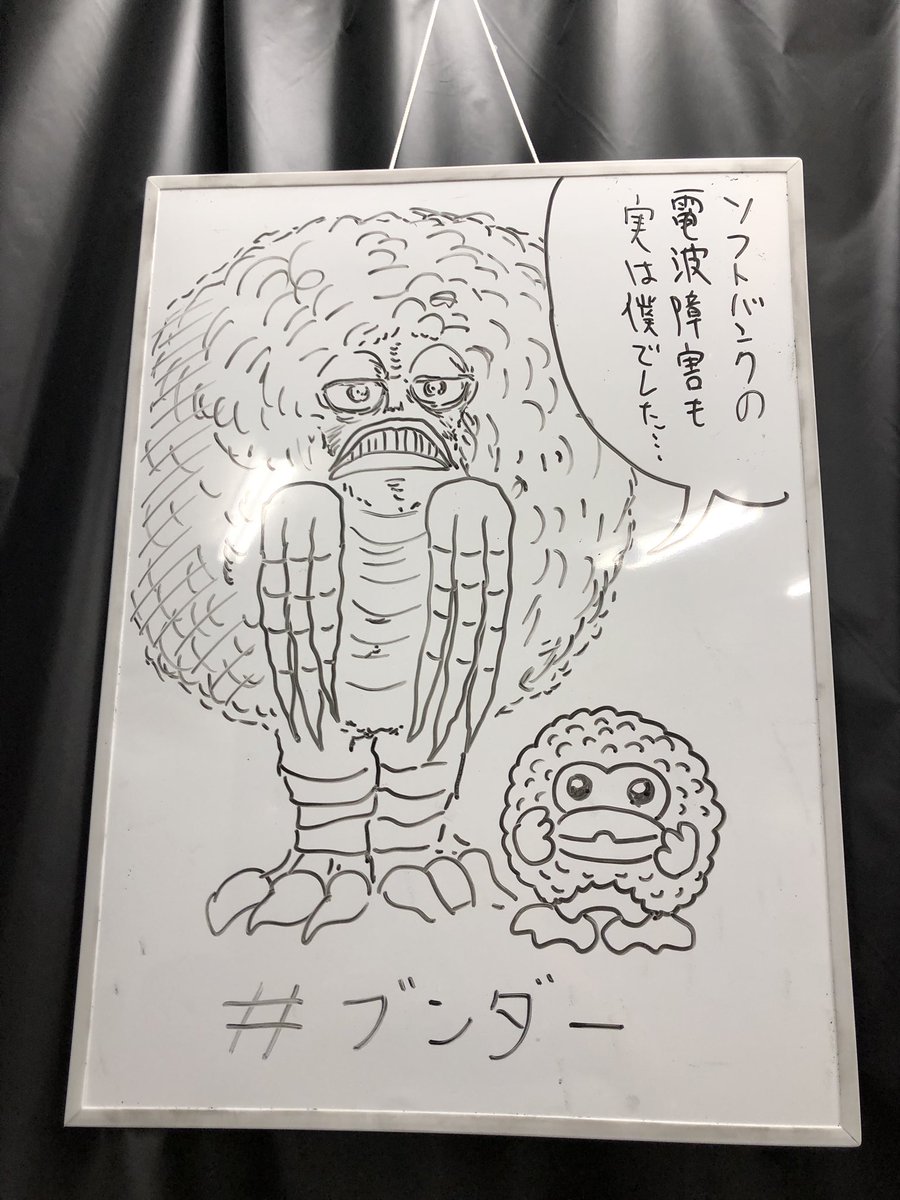 ソフトバンクの
電波障害も
実は僕でした…
#ブンダー